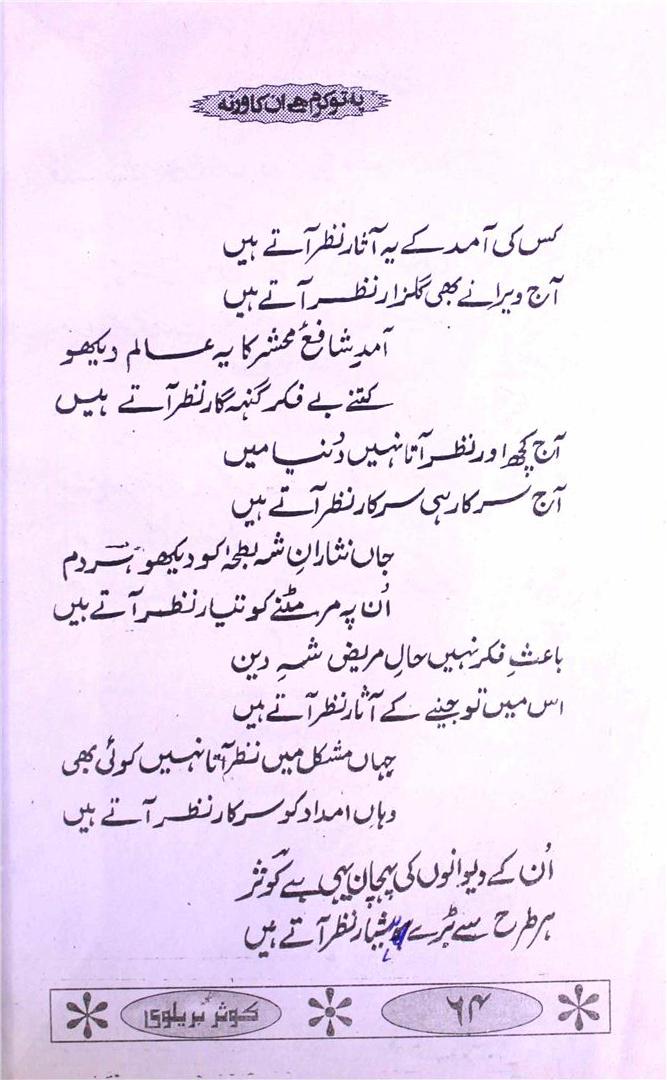 یہ تو کرم ہے ان کا ورنہ
کس کی آمد کے یہ آثار نظر آتے ہیں
آج ویرانے بھی گلزار نظر آتے ہیں
آمدِ شافعِ محشر کا یہ عالم دیکھو
کتنے بے فکر گنہ گار نظر آتے ہیں
آج کچھ اور نظر آتا نہیں دُنیا میں
آج سرکار ہی سرکار نظر آتے ہیں
جاں نثارانِ شہ بطحیٰ کو دیکھو ہر دم
اُن پہ مر مٹنے کو تیار نظر آتے ہیں
باعثِ فکر نہیں حالِ مریض شہِ دین
اس میں تو جینے کے آثار نظر آتے ہیں
جہاں مشکل میں نظر آتا نہیں کوئی بھی
وہاں امداد کو سرکار نظر آتے ہیں
اُن کے دیوانوں کی پہچان یہی ہے کوثر
ہر طرح سے بڑے ہشیار نظر آتے ہیں
۶۴
کوثر بریلوی